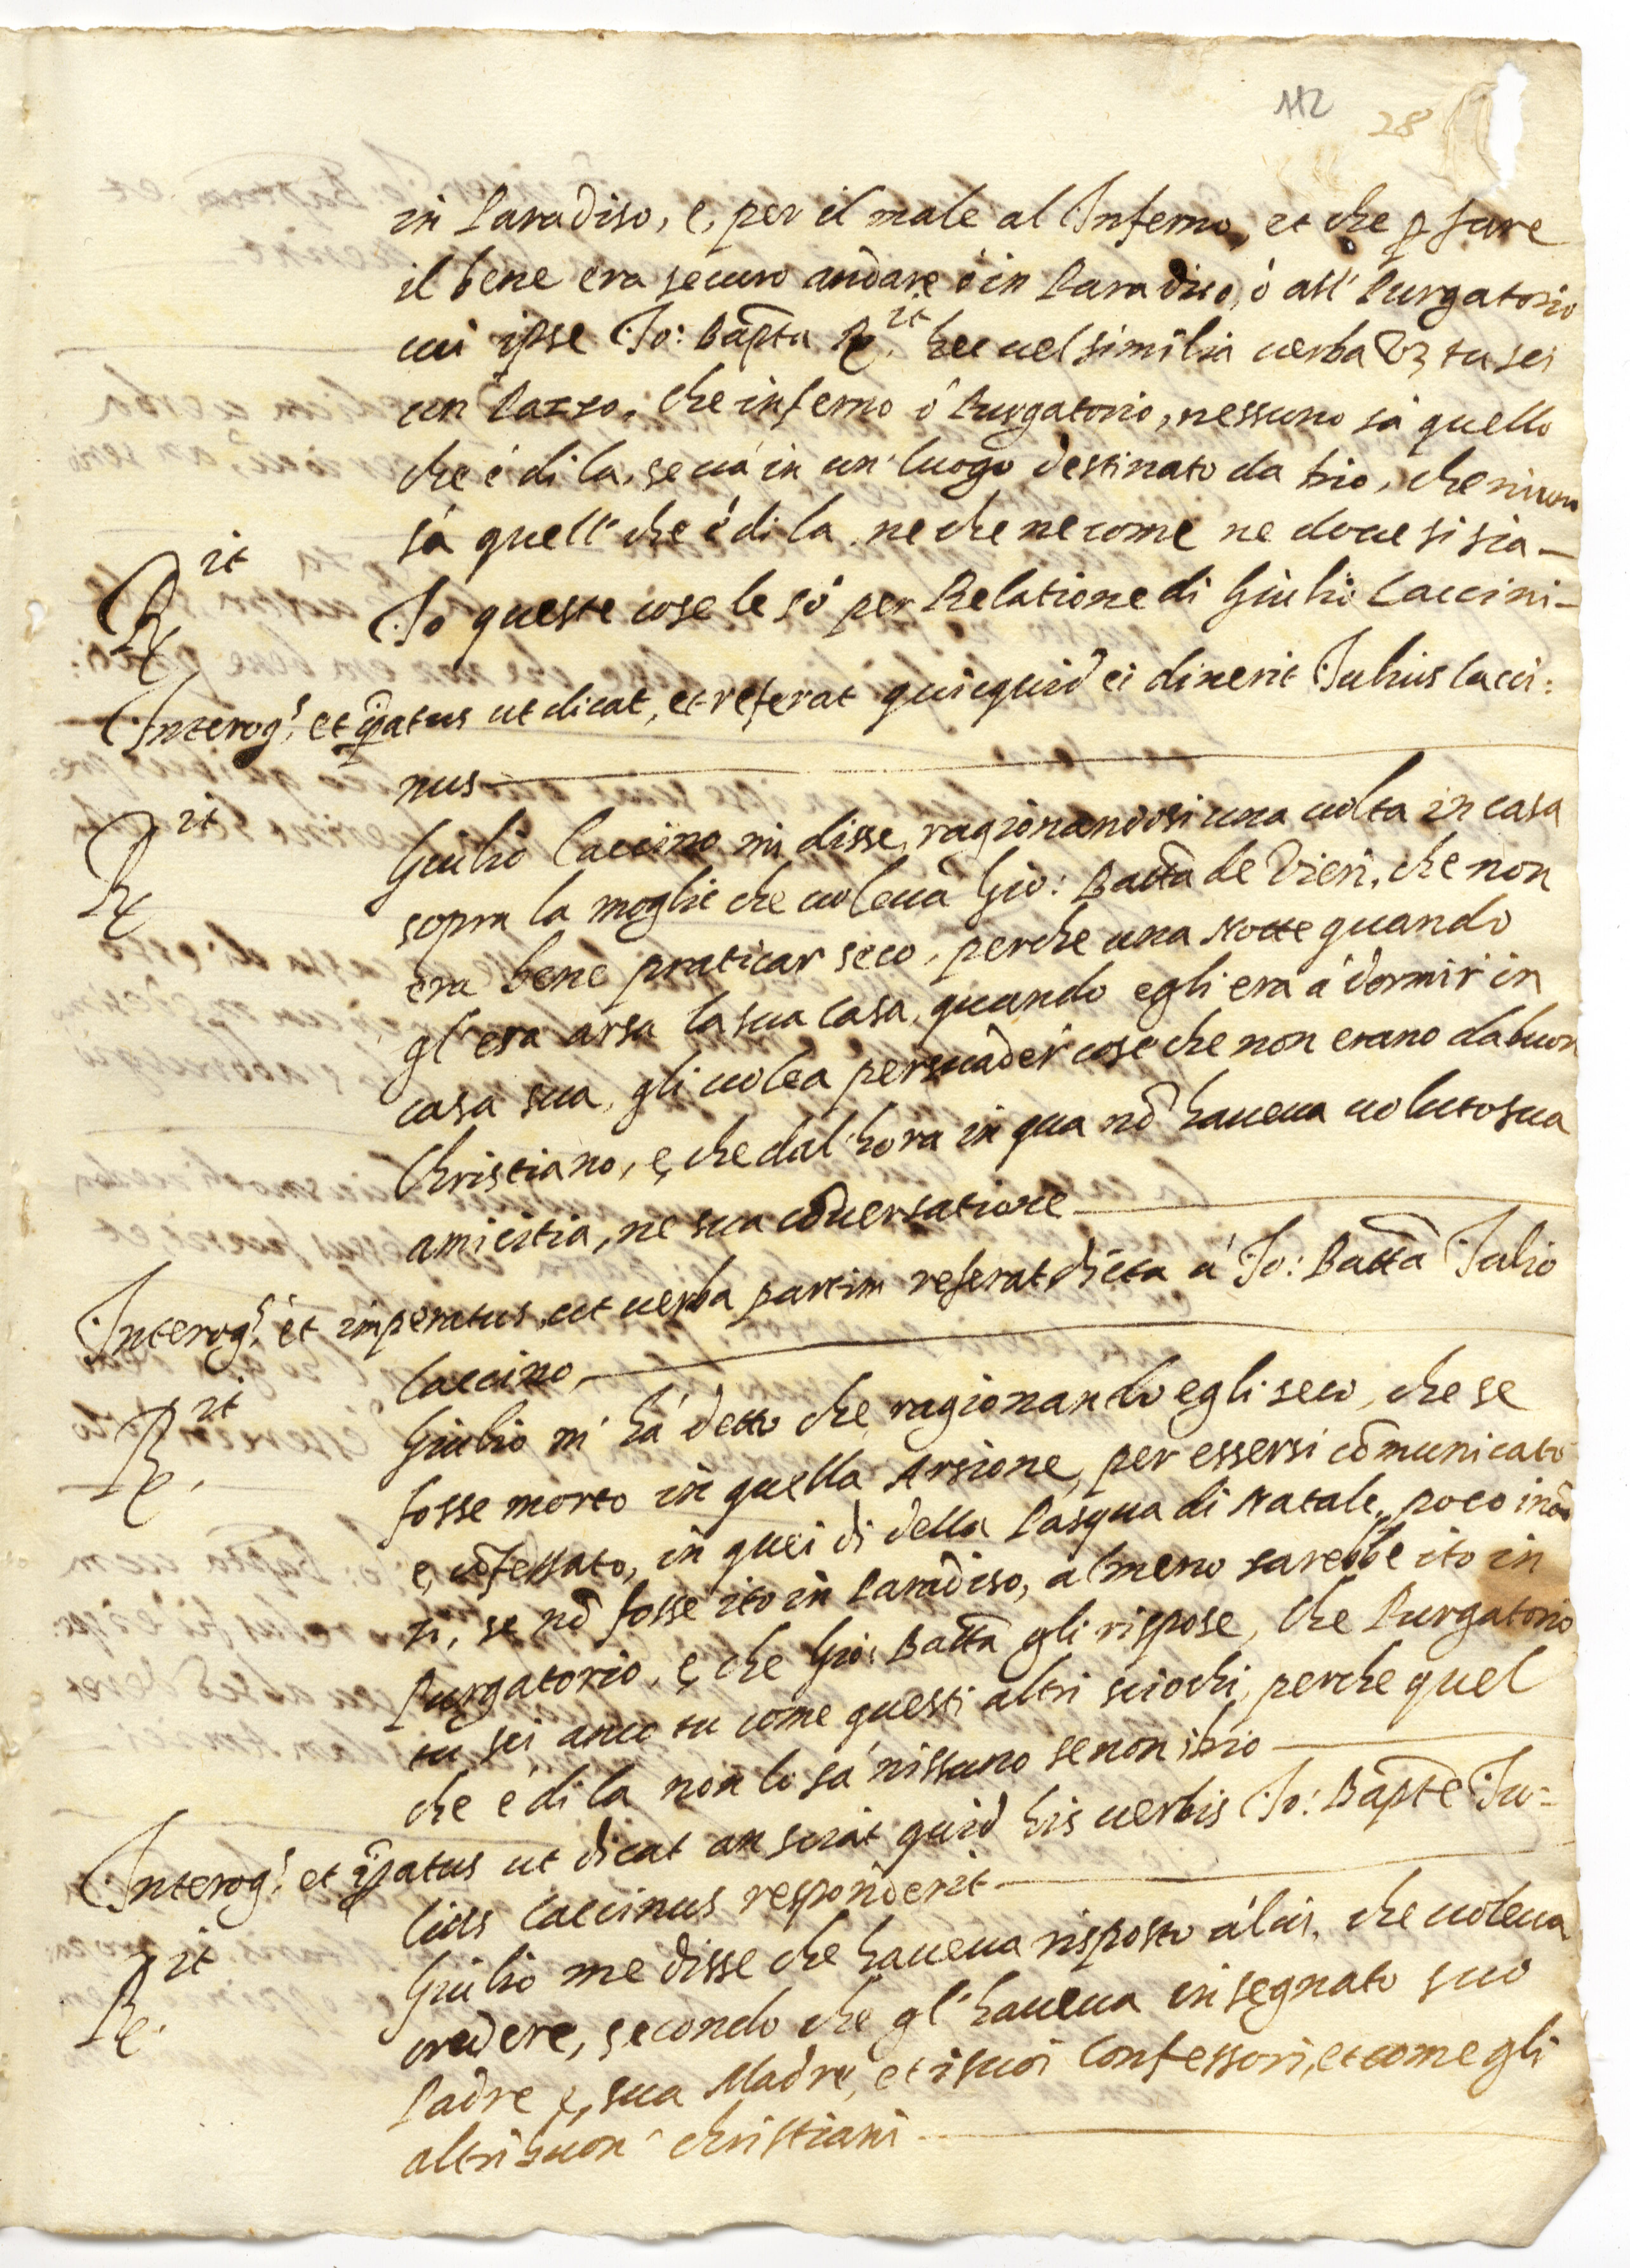 112 28
in Paradiso, e, per il male al Inferno, et che p fare
il bene era securo andare ò in Paradiso, ò all' Purgatorio
cui ipse Jo: Bapta R.it hec uel similia uerba Vz tu sei
un Pazzo, che inferno ò Purgatorio, nessuno sà quello
che è di la, se uà in un' luogo destinato da Dio, che niuno
sà quell' che è di la ne che ne come ne doue si sia —
Rit Io queste cose le sò per Relatione di Giulio Caccini —
Interog.s et iperatus ut dicat, et referat quicquid ei dixerit Julius Cacci:
nus —
Rit Giulio Caccino mi disse, ragionandosi una uolta in casa
sopra la moglie che uoleua Gio: Batta de Vieri, che non
era bene praticar seco, perche una Notte quando
gl'era arsa la sua Casa, quando egli era à dormir in
casa sua, gli uolea persuader cose che non erano da buon
Christiano, e, che dal'hora in qua nõ haueua uoluto sua
amicitia, ne sua cõuersatione —
Interog.s et imperatus, ut uerba partim referat dicta à Jo: Batta Julio
Caccino, —
Rit. Giulio m' hà detto che ragionando egli seco, che se
fosse morto in quella Arsione, per essersi cõmunicato
e, cõfessato, in quei dì della Pasqua di Natale, poco inã
zi, se nõ fosse ito in Paradiso, almeno sarebbe ito in
Purgatorio, e, che Gio: Batta gli rispose, che Purgatorio
tu sei anco tu come questi altri sciochi, perche quel
che è di la non lo sà nissuno se non idio —
Interog.s et iperatus ut dicat an sciat quid his uerbis Jo: Bapte Ju=
lius Caccinus responderit —
Rit. Giulio me disse che haueua risposto à lui, che uoleua
credere, secondo che gl'haueua insegnato suo
Padre e, sua Madre, et i suoi Confessori, et come gli
altri buon' christiani —